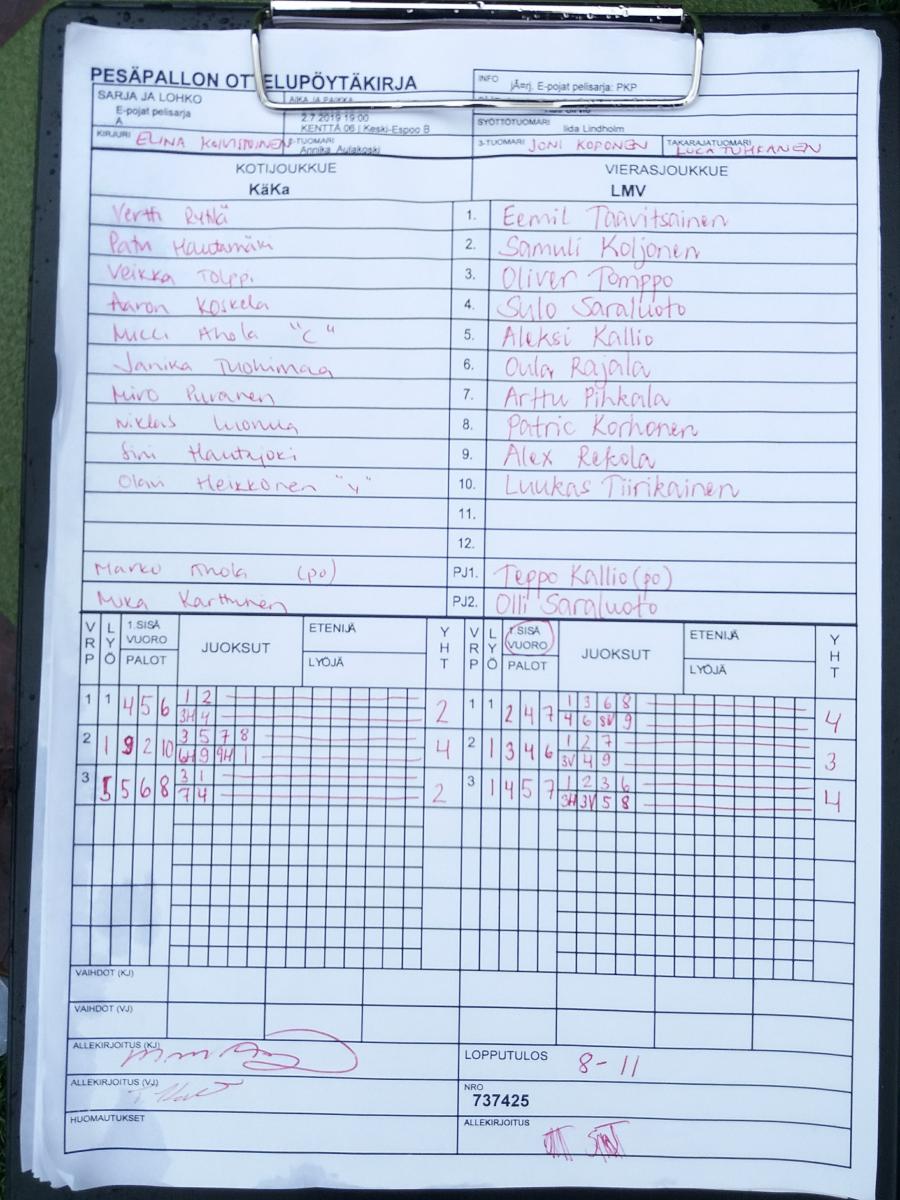 PESÄPALLON OTTELUPÖYTÄKIRJA
INFO
jÄ=rj. E-pojat pelisarja: PKP
SARJA JA LOHKO
E-pojat pelisarja
A
AIKA JA PAIKKA
2.7.2019 19:00
KENTTÄ 06 | Keski-Espoo B
SYÖTTÖTUOMARI
Iida Lindholm
KIRJURI ELINA KOIVISTOINEN
2-TUOMARI
Annika Aulakoski
3-TUOMARI JONI KOPONEN
TAKARAJATUOMARI
LUKA TUHKANEN
KOTIJOUKKUE
KäKa
VIERASJOUKKUE
LMV
Vertti Rytilä 1. Eemil Taavitsainen
Patu Hautamäki 2. Samuli Koljonen
Veikka Tolppi 3. Oliver Tomppo
Aaron Koskela 4. Sulo Saraluoto
Micci Ahola "C" 5. Aleksi Kallio
Janika Tuohimaa 6. Oula Rajala
Miro Puranen 7. Arttu Pihkala
Niklas Luomua 8. Patric Korhonen
Sini Hautajoki 9. Alex Rekola
Olavi Heikkonen "V" 10. Luukas Tiirikainen
11.
12.
Marko Ahola (po) PJ1. Teppo Kallio (po)
Mika Karttunen PJ2. Olli Saraluoto
VRP LYÖ 1.SISÄ VUORO PALOT JUOKSUT ETENIJÄ LYÖJÄ YHT VRP LYÖ 1.SISÄ VUORO PALOT JUOKSUT ETENIJÄ LYÖJÄ YHT
1 1 4 5 6 1 2 2 1 1 2 4 7 1 3 6 8 4
3H 4 4 6 8V 9
2 1 9 2 10 3 5 7 8 4 2 1 3 4 6 1 2 7 3
6H 9 9H 1 3V 4 9
3 5 5 6 8 3 1 2 3 1 4 5 7 1 2 3 6 4
7 4 3H 3V 5 8
VAIHDOT (KJ)
VAIHDOT (VJ)
ALLEKIRJOITUS (KJ)
LOPPUTULOS 8-11
ALLEKIRJOITUS (VJ)
NRO
737425
HUOMAUTUKSET
ALLEKIRJOITUS